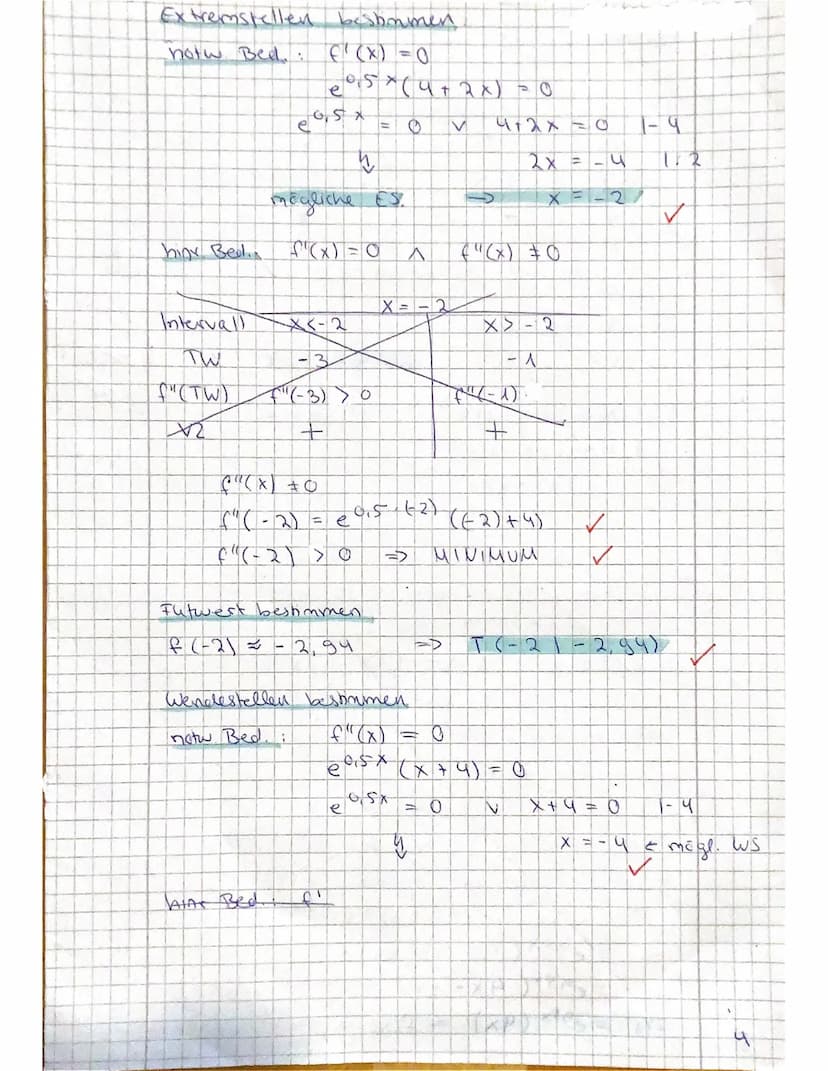 Extremstellen bestimmen
notw Bed.: f'(x) = 0
e^0,5x (4 + 2x) = 0
e^0,5x = 0 ∨ 4+2x = 0 |-4
↯ 2x = -4 |:2
mögliche ES. => x = -2
✓
hinr Bed.: f'(x) = 0 ∧ f''(x) ≠ 0
x = -2
Intervall x<-2 x>-2
TW -3 -1
f''(TW) f''(-3) > 0 f''(-1)
VZ + +
f''(x) ≠ 0
f''(-2) = e^0,5·(-2) ((-2)+4) ✓
f''(-2) > 0 => MINIMUM ✓
Futwest bestimmen
f(-2) ≈ -2,94 => T(-2|-2,94) ✓
Wendestellen bestimmen
notw Bed.: f''(x) = 0
e^0,5x (x+4) = 0
e^0,5x = 0 ∨ x+4 = 0 |-4
↯ x = -4 ← mögl. WS
✓
hinr Bed.: f'
4